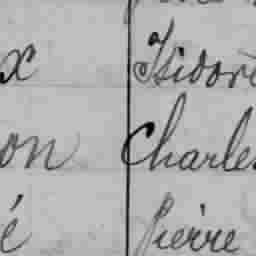 x Isidore
on Charles
é Pierre